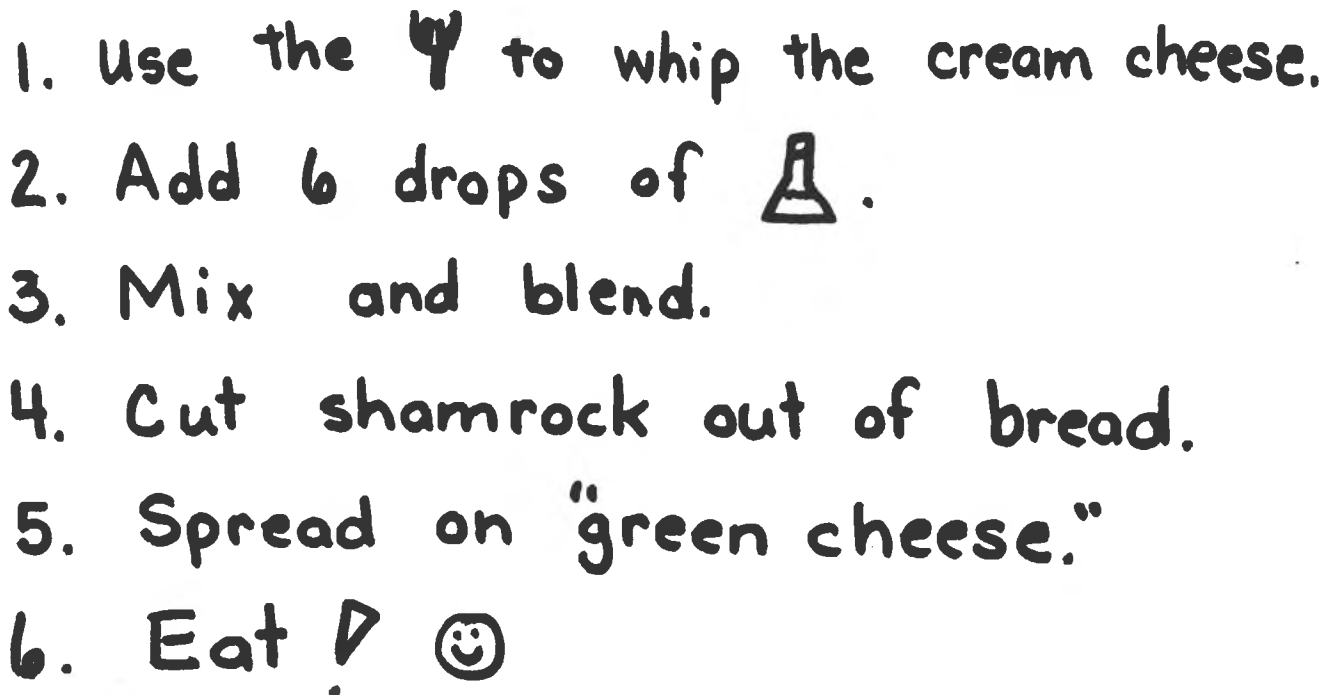 1. Use the to whip the cream cheese.
2. Add 6 drops of .
3. Mix and blend.
4. Cut shamrock out of bread.
5. Spread on "green cheese."
6. Eat!